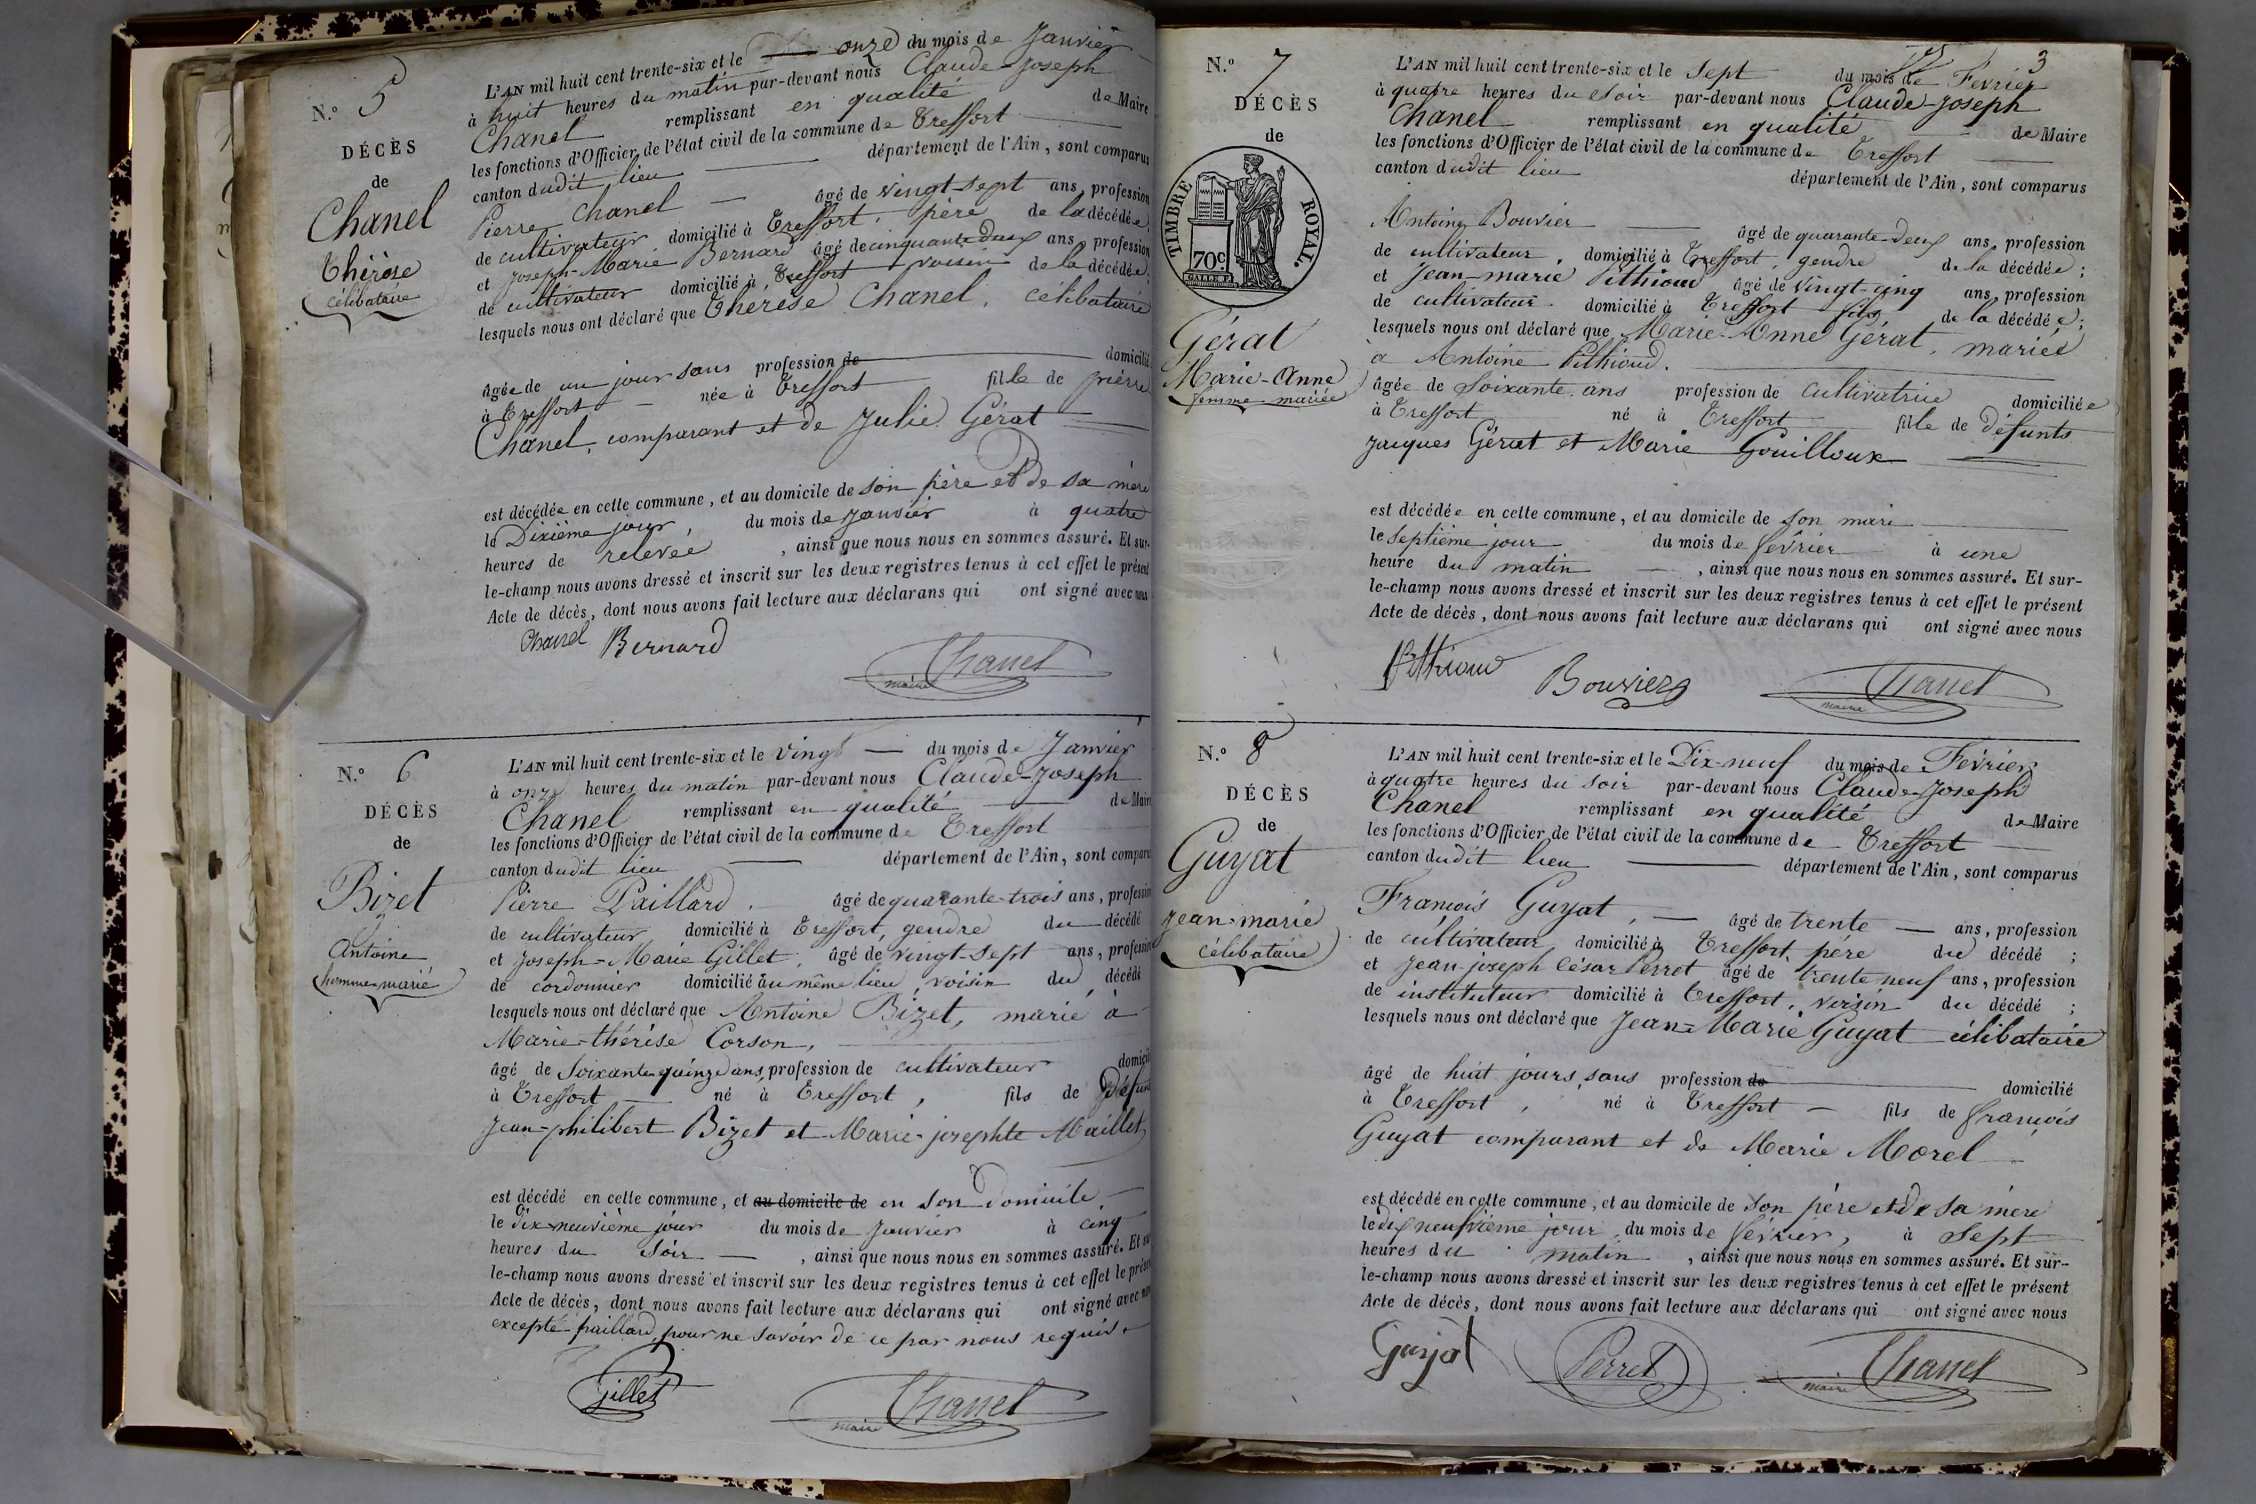 N.° 5
DÉCÈS
de
Chanel
Thérèse
célibataire
L'AN mil huit cent trente-six et le onze du mois de Janvier
à huit heures du matin par-devant nous Claude-Joseph
Chanel remplissant en qualité de Maire
les fonctions d'Officier de l'état civil de la commune de Treffort
canton dudit lieu département de l'Ain, sont comparus
Pierre Chanel âgé de vingt-sept ans, profession
de cultivateur domicilié à Treffort, père de la décédée;
et Joseph-Marie Bernard âgé de cinquante-deux ans, profession
de cultivateur domicilié à Treffort voisin de la décédée;
lesquels nous ont déclaré que Thérèse Chanel, célibataire
âgée de un jour sans profession de domicilié
à Treffort née à Treffort fille de pierre
Chanel, comparant et de Julie Gérat
est décédée en cette commune, et au domicile de son père et de sa mère
le Dixième jour, du mois de Janvier à quatre
heures de relevée, ainsi que nous nous en sommes assuré. Et sur-
le-champ nous avons dressé et inscrit sur les deux registres tenus à cet effet le présent
Acte de décès, dont nous avons fait lecture aux déclarans qui ont signé avec nous
Chanel Bernard Chanel
maire
N.° 6
DÉCÈS
de
Bizet
Antoine
homme marié
L'AN mil huit cent trente-six et le vingt du mois de Janvier
à onze heures du matin par-devant nous Claude-Joseph
Chanel remplissant en qualité de Mair
les fonctions d'Officier de l'état civil de la commune de Treffort
canton dudit lieu département de l'Ain, sont comparu
Pierre Paillard. âgé de quarante-trois ans, profession
de cultivateur domicilié à Treffort, gendre du décédé
et Joseph-Marie Gillet, âgé de vingt-sept ans, profession
de cordonnier domicilié au même lieu, voisin du décédé
lesquels nous ont déclaré que Antoine Bizet, marié à
Marie-thérèse Corson,
âgé de Soixante-quinze ans, profession de cultivateur domicil
à Treffort né à Treffort, fils de défunt
Jean-philibert Bizet et Marie-josephte Maillet
est décédé en cette commune, et au domicile de en son Domicile
le dix-neuvième jour du mois de Janvier à cinq
heures du soir, ainsi que nous nous en sommes assuré. Et su
le-champ nous avons dressé et inscrit sur les deux registres tenus à cet effet le prése
Acte de décès, dont nous avons fait lecture aux déclarans qui ont signé avec nou
excepté paillard pour ne savoir de ce par nous requis
Gillet Chanel
maire
3
N.° 7
DÉCÈS
de
TIMBRE ROYAL.
70c
GALLE F.
Gérat
Marie-Anne
femme mariée
L'AN mil huit cent trente-six et le sept du mois de Février
à quatre heures du soir par-devant nous Claude-Joseph
Chanel remplissant en qualité de Maire
les fonctions d'Officier de l'état civil de la commune de Treffort
canton dudit lieu département de l'Ain, sont comparus
Antoine Bouvier âgé de quarante-deux ans, profession
de cultivateur, domicilié à Treffort, gendre de la décédée;
et Jean-marie Pithioud âgé de vingt-cinq ans, profession
de cultivateur domicilié à Treffort fils de la décédée;
lesquels nous ont déclaré que Marie-Anne Gérat, mariée
à Antoine Pithioud.
âgée de soixante ans profession de cultivatrice domiciliée
à Treffort né à Treffort fille de défunts
Jacques Gérat et Marie Gouilloux
est décédée en cette commune, et au domicile de son mari
le septième jour du mois de février à une
heure du matin, ainsi que nous nous en sommes assuré. Et sur-
le-champ nous avons dressé et inscrit sur les deux registres tenus à cet effet le présent
Acte de décès, dont nous avons fait lecture aux déclarans qui ont signé avec nous
Pithioud Bouvier Chanel
maire
N.° 8
DÉCÈS
de
Guyat
Jean-marie
célibataire
L'AN mil huit cent trente-six et le Dix-neuf du mois de Février
à quatre heures du soir par-devant nous Claude-Joseph
Chanel remplissant en qualité de Maire
les fonctions d'Officier de l'état civil de la commune de Treffort
canton dudit lieu département de l'Ain, sont comparus
François Guyat, âgé de trente ans, profession
de cultivateur domicilié à Treffort, père du décédé;
et Jean-joseph César Perret âgé de trente neuf ans, profession
de instituteur domicilié à Treffort, voisin du décédé;
lesquels nous ont déclaré que Jean-Marie Guyat célibataire
âgé de huit jours, sans profession de domicilié
à Treffort, né à Treffort fils de françois
Guyat comparant et de Marie Morel
est décédé en cette commune, et au domicile de son père et de sa mère
le dix neufvième jour du mois de février, à sept
heures du matin, ainsi que nous nous en sommes assuré. Et sur-
le-champ nous avons dressé et inscrit sur les deux registres tenus à cet effet le présent
Acte de décès, dont nous avons fait lecture aux déclarans qui ont signé avec nous
Guyat Perret Chanel
maire